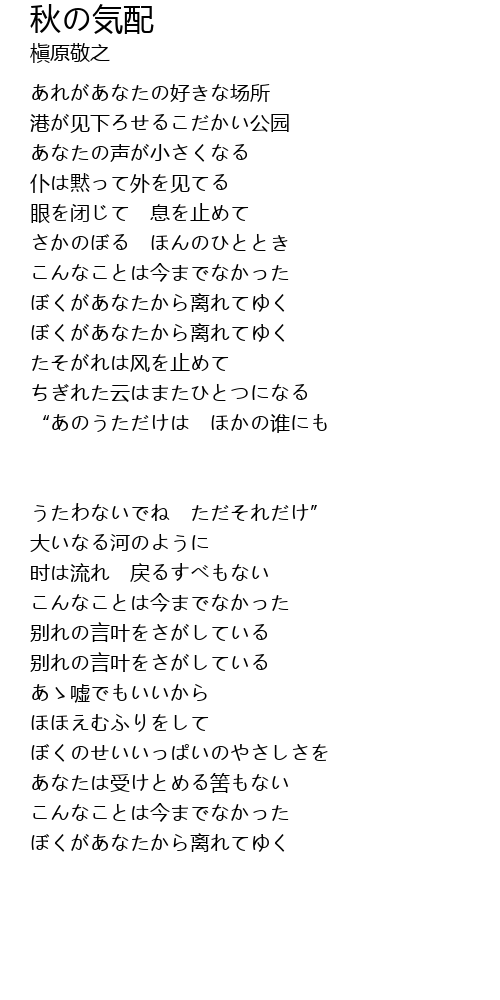 秋の気配
槇原敬之
あれがあなたの好きな场所
港が见下ろせるこだかい公园
あなたの声が小さくなる
仆は黙って外を见てる
眼を闭じて　息を止めて
さかのぼる　ほんのひととき
こんなことは今までなかった
ぼくがあなたから离れてゆく
ぼくがあなたから离れてゆく
たそがれは风を止めて
ちぎれた云はまたひとつになる
“あのうただけは　ほかの谁にも
うたわないでね　ただそれだけ”
大いなる河のように
时は流れ　戻るすべもない
こんなことは今までなかった
别れの言叶をさがしている
别れの言叶をさがしている
あゝ嘘でもいいから
ほほえむふりをして
ぼくのせいいっぱいのやさしさを
あなたは受けとめる筈もない
こんなことは今までなかった
ぼくがあなたから离れてゆく